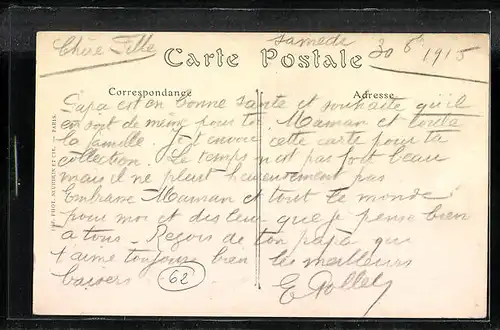 Chère Fille
Samedi 30 8bre 1915
Carte Postale
Correspondance
Adresse
Papa est en bonne santé et souhaite qu'il
en soit de même pour toi Maman et toute
la famille. Je t'envoie cette carte pour ta
collection. Le temps n'est pas fort beau
mais il ne pleut heureusement pas
Embrasse Maman et tout le monde
pour moi et dis leur que je pense bien
à tous. Reçois de ton papa qui
t'aime toujours bien les meilleurs
baisers
62
E Pollet
IMP. PHOT. NEURDEIN ET CIE. — PARIS.